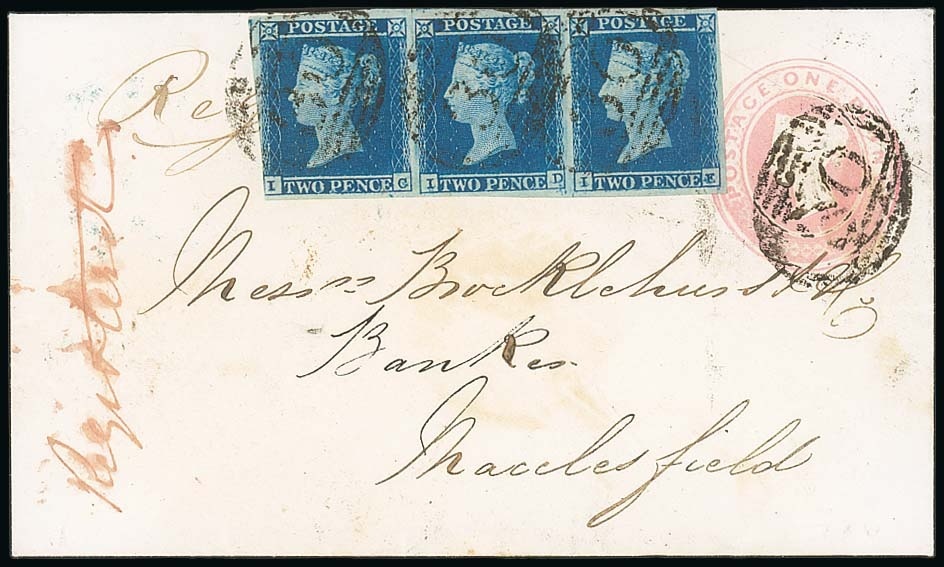 POSTAGE POSTAGE POSTAGE
I TWO PENCE C I TWO PENCE D I TWO PENCE E
POSTAGE ONE
Reg
Messrs Brocklehurst & Co
Bankers
Macclesfield
Registered